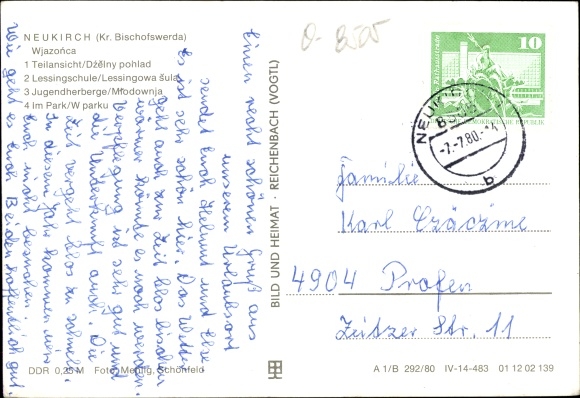 NEUKIRCH (Kr. Bischofswerda)
Wjazońca
1 Teilansicht/Dźělny pohlad
2 Lessingschule/Lessingowa šula
3 Jugendherberge/Młodownja
4 Im Park/W parku
DDR 0,25 M Foto: Mehlig, Schönfeld
BILD UND HEIMAT · REICHENBACH (VOGTL)
A 1/B 292/80 IV-14-483 01 12 02 139
10
Rathausstraße
DEMOKRATISCHE REPUBLIK
NEUKIRCH
-7.-7.80.-14
b
Familie
Karl
4904 Profen
Zeitzer Str. 11
Einen recht schönen Gruß aus
unserem Urlaubsort
sendet Euch Helmut und Ilse
Es ist sehr schön hier. Das Wetter
geht auch zur Zeit blos bischen
wärmer könnte es noch werden.
Verpflegung ist sehr gut und
die Unterkunft auch. Die
Zeit vergeht blos zu schnell.
In diesem Jahr kommen wir
Euch mich besuchen.
Wie geht es Euch Beiden hoffentlich gut.